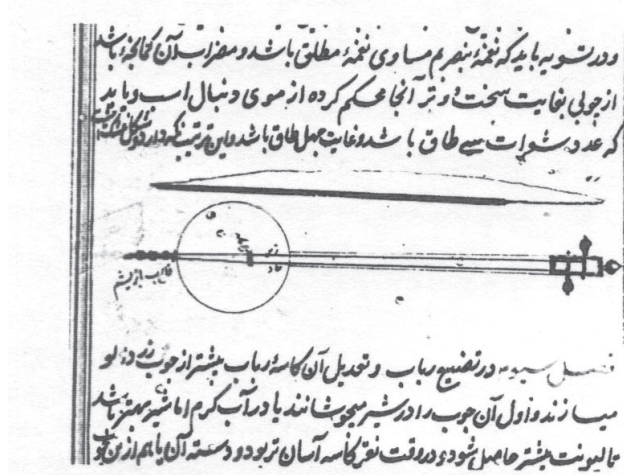 و در تسویه باید که نغمهٔ بنصر بم مساوی نغمهٔ مطلق باشد و مضراب آن کمانچه باشد
از چوبی بغایت سخت و وتر آنجا محکم کرده از موی دنبال اسب و باید
که عدد شعرات سی طاق باشد و غایت چهل طاق باشد و این مرتب که دارد
فصل سیوم در تضییع رباب و تعدیل آن کاسهٔ رباب بیشتر از چوب زرد
میسازند و اول آن چوب را در شیر میجوشانند یا در آب گرم اما شیر بهتر باشد
تا لیونت بیشتر حاصل شود و در وقت نقر کاسه آسان تر بود و دسته آن با هم از